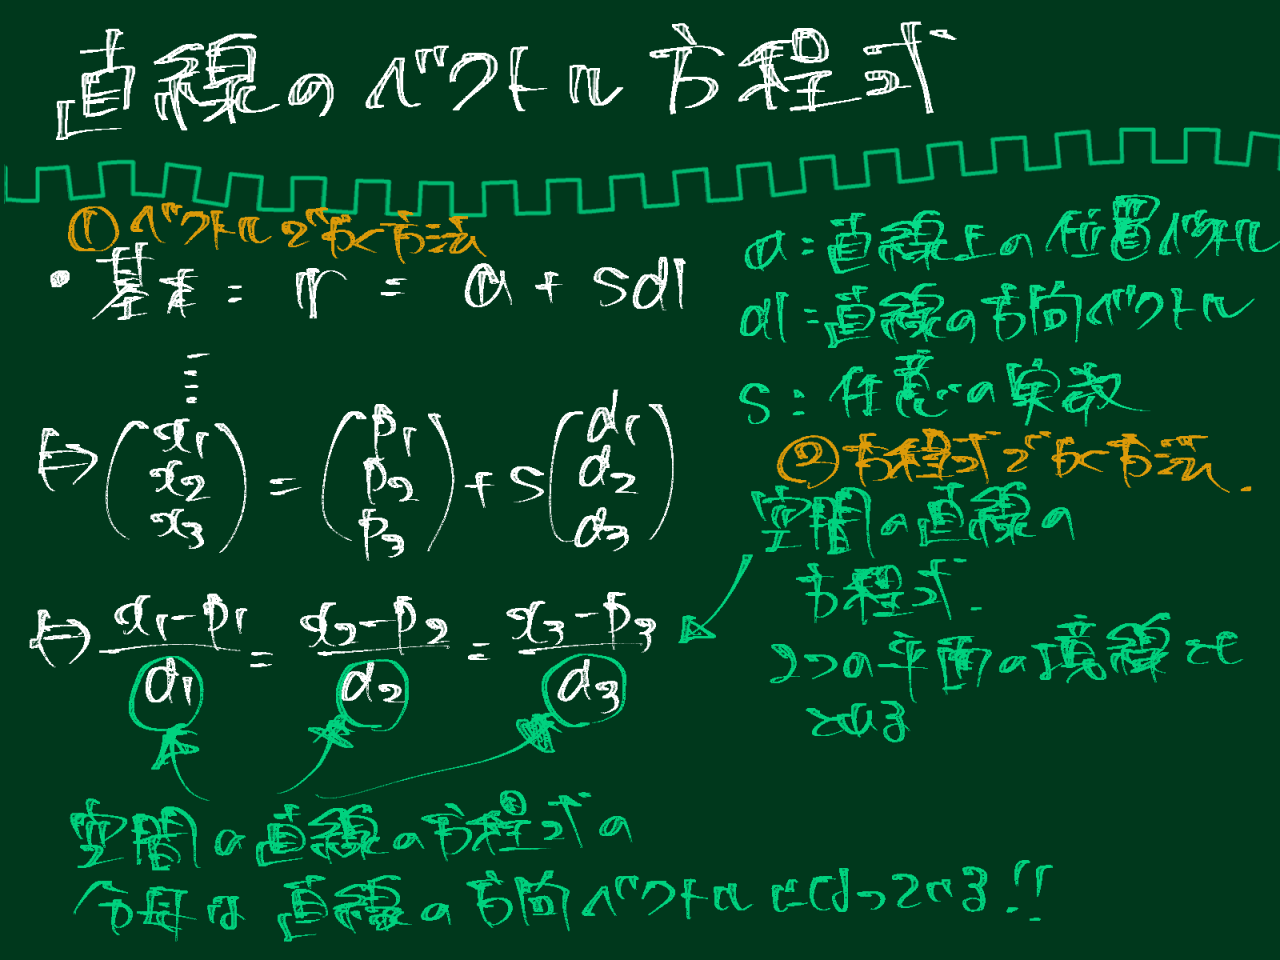 直線のベクトル方程式
①ベクトルでかく方法
・基本: r = a + sd
⇔ (x₁ x₂ x₃) = (p₁ p₂ p₃) + s(d₁ d₂ d₃)
⇔ x₁-p₁/d₁ = x₂-p₂/d₂ = x₃-p₃/d₃
a:直線上の位置ベクトル
d:直線の方向ベクトル
s:任意の実数
②方程式でかく方法.
空間の直線の
方程式.
2つの平面の境線とも
とれる
空間の直線の方程式の
分母は直線の方向ベクトルになっている!!